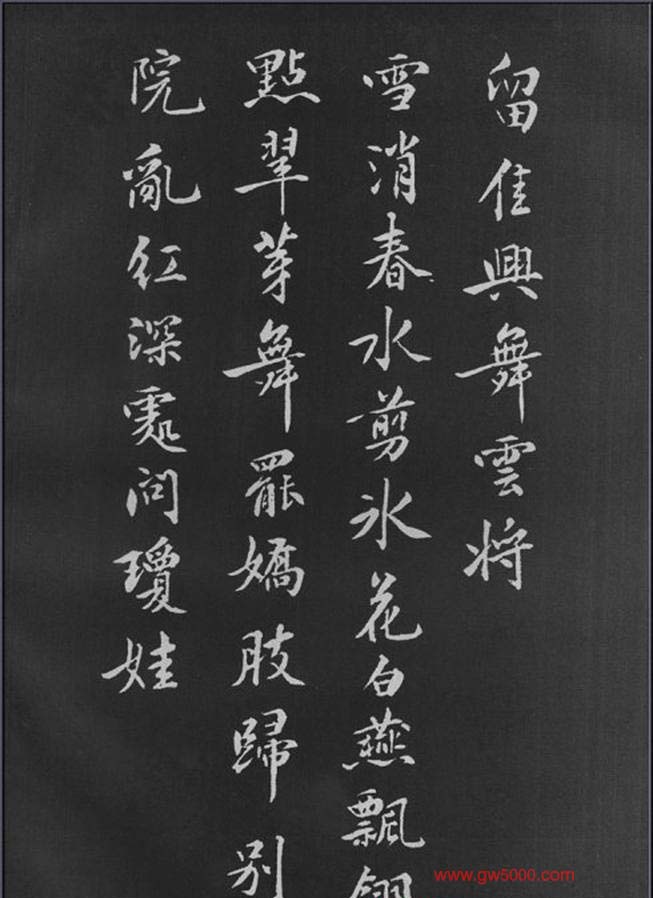 留佳興舞雲将
雪消春水剪氷花白燕飄
點翠芽舞罷嬌肢歸别
院亂紅深處問瓊娃
www.gw5000.com